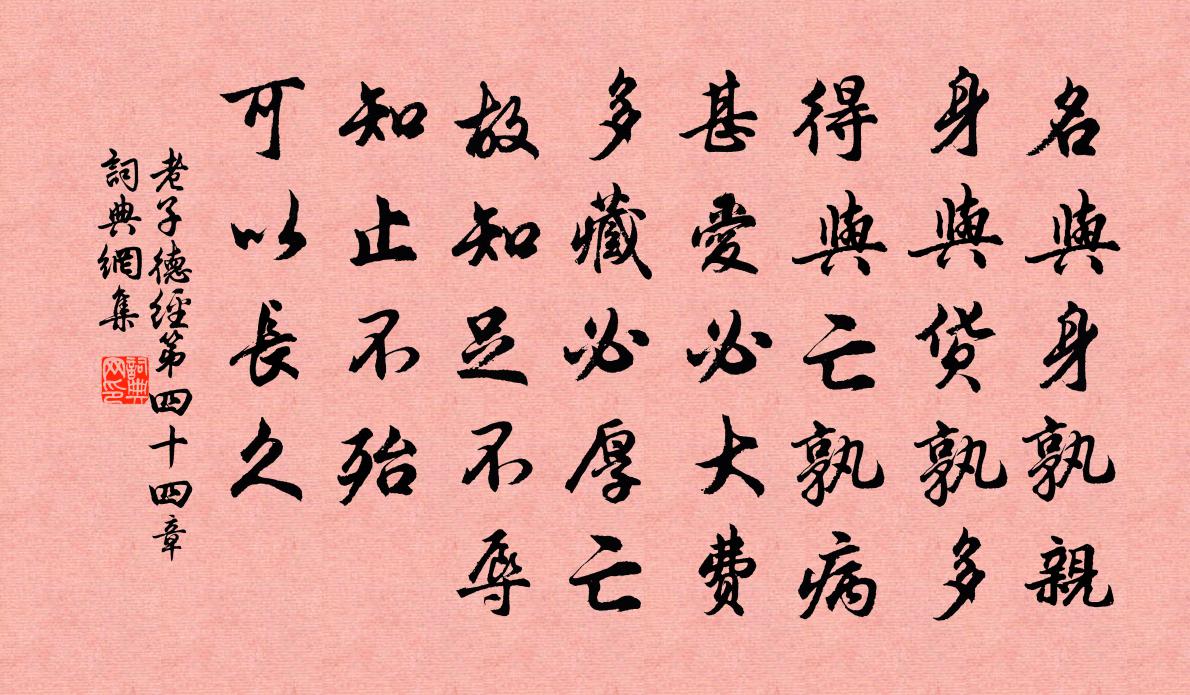 名與身孰親
身與貨孰多
得與亡孰病
甚愛必大費
多藏必厚亡
故知足不辱
知止不殆
可以長久
老子德經第四十四章
詞典網集
詞典网印